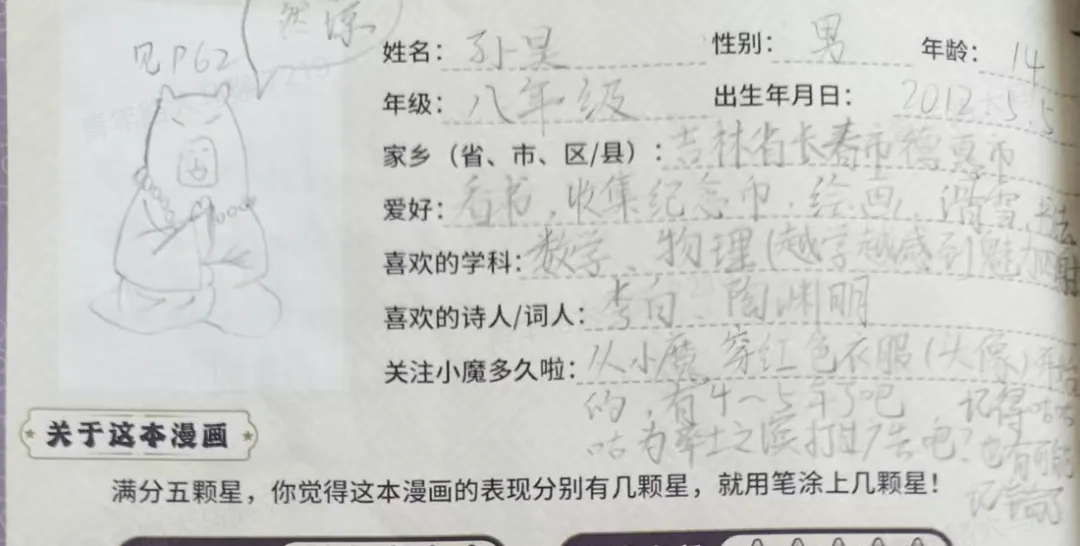 见P62
姓名：孙昊 性别：男 年龄：14
年级：八年级 出生年月日：2012.5.5
家乡（省、市、区/县）：吉林省长春市德惠市
爱好：看书、收集纪念币、绘画、滑雪、书法
喜欢的学科：数学、物理（越学越感到魅力四射
喜欢的诗人/词人：李白、陶渊明
关注小魔多久啦：从小魔穿红色衣服（头像）开始
的，有4～5年了吧 记得咕咕
咕为率土之滨打过广告吧？也有可能
记错了
关于这本漫画
满分五颗星，你觉得这本漫画的表现分别有几颗星，就用笔涂上几颗星！